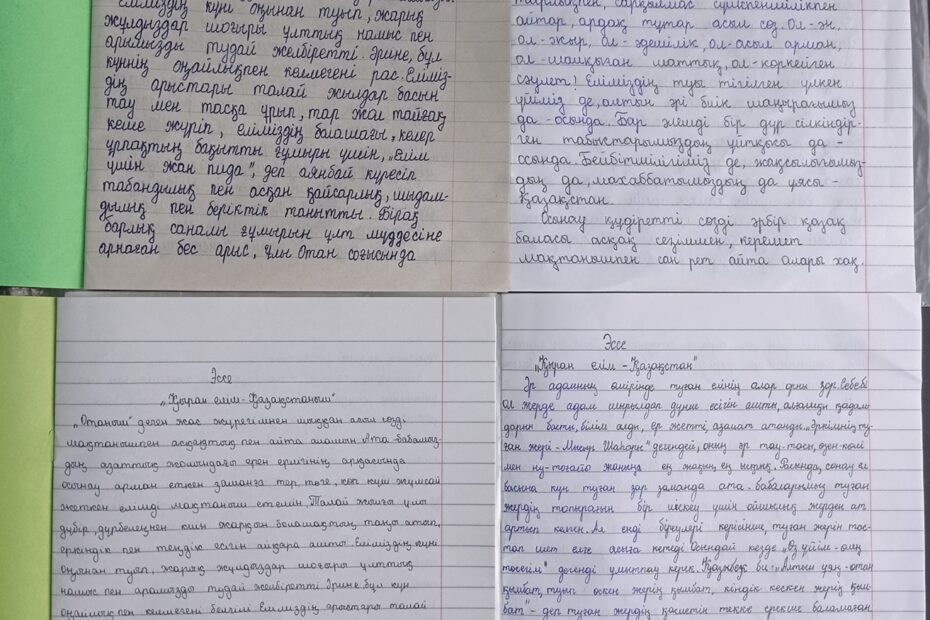 Еліміздің күні оңынан туып, жарық
жұлдыздар шоғыры ұлттық намыс пен
арымызды тудай желбіретті. Әрине, бұл
күннің оңайлықпен келмегені рас. Еліміз-
дің арыстары талай жылдар басын
тау мен тасқа ұрып, тар жол тайғақ
кеше жүріп, еліміздің балашағы, келер
ұрпақтың бақытты ғұмыры үшін, „Елім
үшін жан пида", деп аянбай күресіп
табандылық пен асқан қайсарлық, шыдам-
дылық пен беріктік танытты. Бірақ
барлық саналы ғұмырын ұлт мүддесіне
арнаған бес арыс, Ұлы Отан соғысында
сарқылмас сүйіспеншілікпен
айтар, ардақ тұтар асыл сөз. Ол-ән,
ол-жыр, ол-әдемілік, ол-асыл арман,
ол-шалқыған шаттық, ол-көркейген
сәулет! Еліміздің туы тігілген үлкен
үйіміз де, алтын әрі биік шаңырағымыз
да-осында. Бар әлемді бір дүр сілкіндір-
ген табыстарымыздың ұйтқысы да-
осында. Бейбітшілігіміз де, жақсылығымыз-
дың да, махаббатымыздың да ұясы-
Қазақстан.
Осынау құдіретті сөзді әрбір қазақ
баласы асқақ сезіммен, керемет
мақтанышпен сан рет айта алары хақ.
Эссе
„Қыран елім-Қазақстаным"
„Отаным" деген жас жүрегімнен шыққан асыл сөзді
мақтанышпен асқақтық пен айта аламын. Ата-бабамыз-
дың азаттық жолындағы ерен ерлігінің арқасында
осынау арман еткен заманға тер төге, көп күш жұмсай
жеткен елімді мақтаныш етемін. Талай жылғы ұлы
дүбір, дүрбелеңнен кейін жарқын болашақтың таңы атып,
еркіндік пен теңдік есігін айқара ашты. Еліміздің күні
оңынан туып, жарық жұлдыздар шоғыры ұлттық
намыс пен арымызды тудай желбіретті. Әрине бұл күн
оңайлықпен келмегені белгілі. Еліміздің арыстары талай
Эссе
„Қыран елім-Қазақстан"
Әр адамның өмірінде туған елінің алар орны зор. Себебі
ол жерде адам шырылдап дүние есігін ашты, алғашқы қадам-
дарын басты, білім алды, ер жетті, азамат атанды. „Әркімнің ту-
ған жері-Мысыр Шаһары" дегендей, оның әр тау-тасы, өзен-көлі
мен ну-тоғайы жаныңа ең жақын, ең ыстық. Расында, сонау ел
басына күн туған зар заманда ата-бабаларымыз туған
жердің топырағын бір иіскеу үшін алыстық жерден ат
артып келген. Ал енді біреулері керісінше, туған жерін тас-
тап шет елге асыға кетеді. Осындай кезде „Өз үйім-өлең
төсегім" дегенді ұмытпау керек. Қазыбек би: „Алтын ұяң-отан
қымбат, туып өскен жерің қымбат, кіндік кескен жерің қым-
бат"-деп туған жердің қасиетін текке ерекше бағаламаған